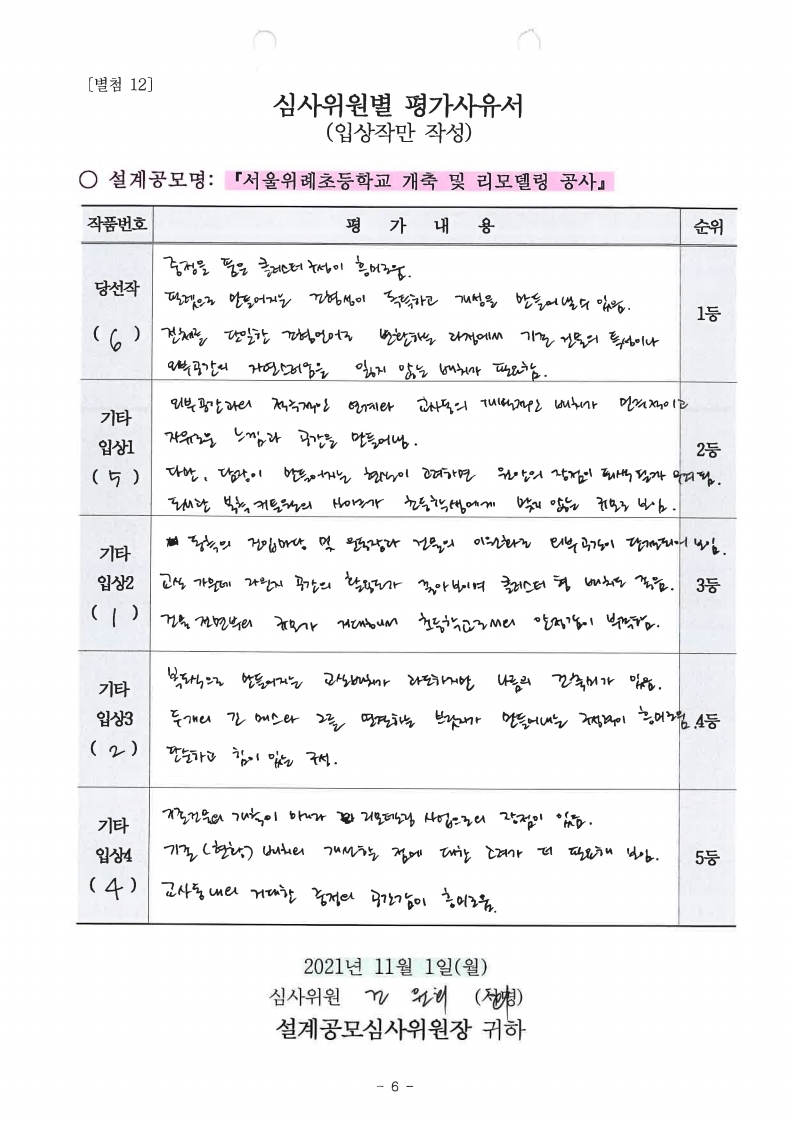 [별첨 12]
심사위원별 평가사유서
(입상작만 작성)
○ 설계공모명: 『서울위례초등학교 개축 및 리모델링 공사』
작품번호 평 가 내 용 순위
당선작
( 6 )
중정을 품은 클러스터 구성이 흥미로움.
만들어지는 조형성이 독특하고 개성을 만들어낼 수 있음.
전체를 단일한 조형언어로 변환하는 과정에서 기존 건물의 특성이나
외부공간의 자연스러움을 잃지 않는 배치가 필요함.
1등
기타
입상1
( 5 )
외부공간과의 적극적인 연계와 교사동의 개방적인 배치가 인상적이고
자유로운 느낌과 공간을 만들어냄.
다만, 담장이 만들어지는 현실이 고려하면 원안의 장점이
초등학생에게 맞지 않는 규모로 보임.
2등
기타
입상2
( 1 )
진입마당 및 운동장과 건물의 이원화로 외부공간이 단절되어 보임.
교실 가운데 공간의 활용도가 낮아보이며 클러스터형 배치도
건물 전면부의 규모가 거대해서 초등학교로서의 안정감이 부족함.
3등
기타
입상3
( 2 )
복도식으로 만들어지는 교실배치가 나름의 건축미가 있음.
두개의 긴 매스와 그를 연결하는 브릿지가 만들어내는 흥미로움.
단순하고 힘이 있는 구성.
4등
기타
입상4
( 4 )
기존건물의 개축이 아니라 리모델링 사업으로의 장점이 있음.
기존(현황) 배치의 개선하는 점에 대한 고려가 더 필요해 보임.
교사동내의 거대한 중정의 공간감이 흥미로움.
5등
2021년 11월 1일(월)
심사위원 (서명)
설계공모심사위원장 귀하
- 6 -